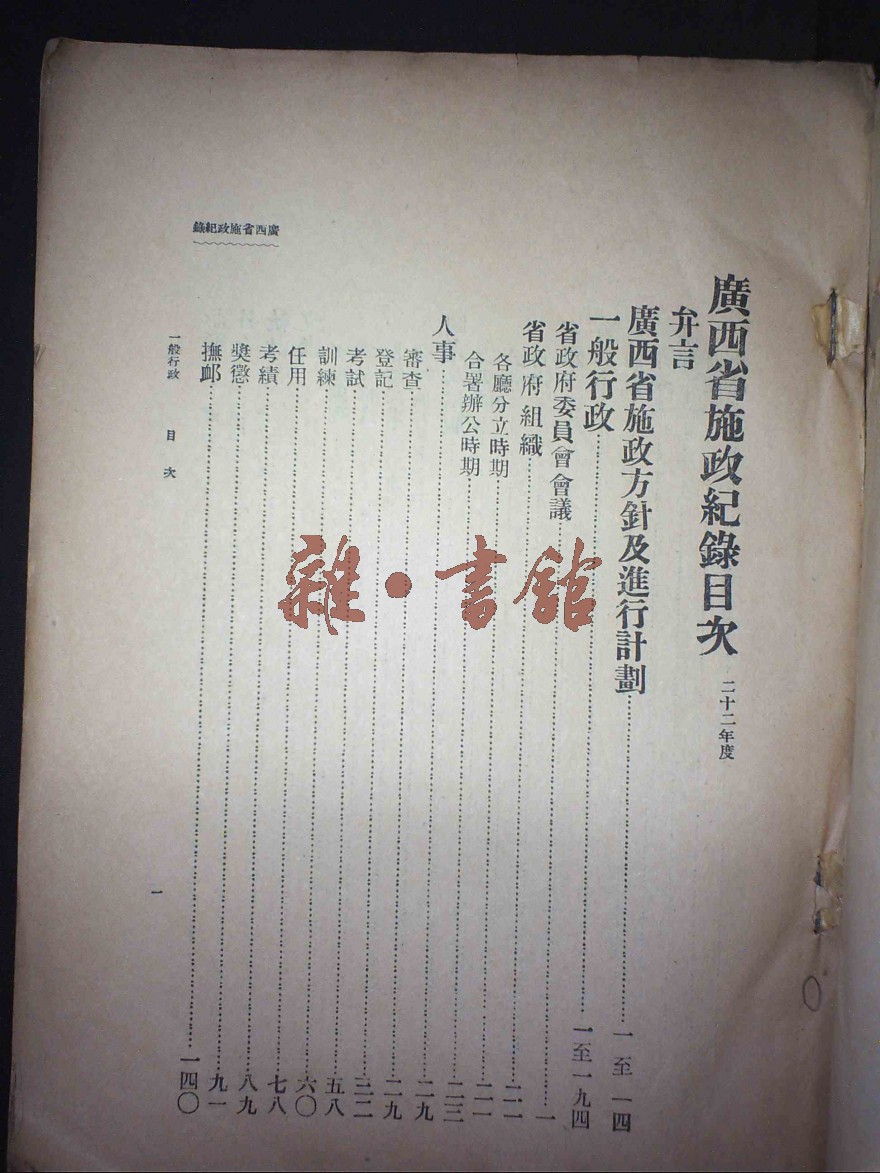 廣西省施政紀錄目次 二十二年度
弁言
廣西省施政方針及進行計劃 一至一四
一般行政 一至一九四
省政府委員會會議 一
省政府組織 二一
各廳分立時期 二一
合署辦公時期 二三
人事 二九
審查 二九
登記 三二
考試 五八
訓練 六〇
任用 七八
考績 八九
獎懲 九一
撫卹 一四〇
廣西省施政紀錄
一般行政 目次
一
雜·書館